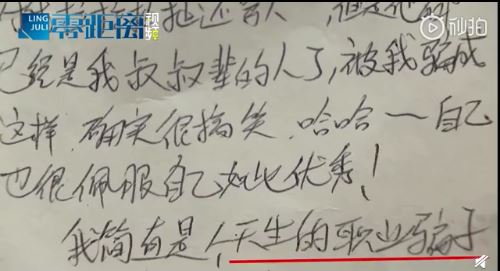 LING JULI 零距离 视频 秒拍
已经是我叔叔辈的人了,被我骗成
这样,确实很搞笑,哈哈一自己
也很佩服自己如此优秀!
我简直是个天生的职业骗子